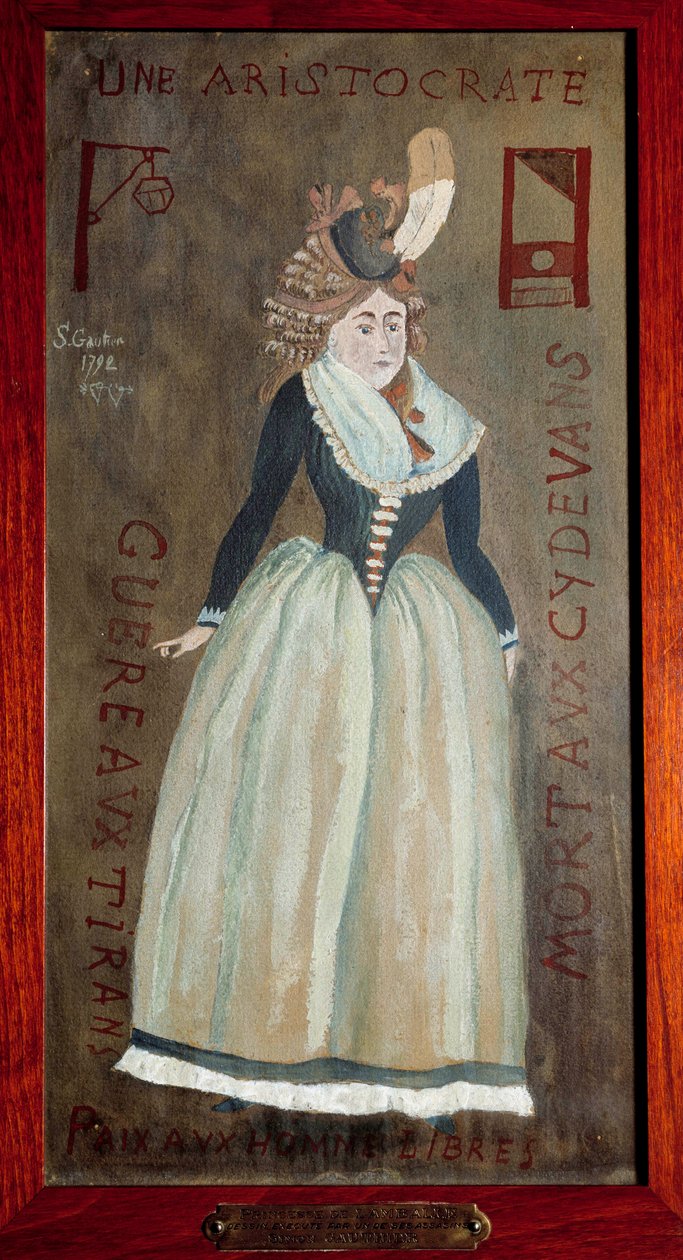 UNE ARISTOCRATE
S. Gautier
1792
GUERE AVX TIRANS
MORT AVX CYDEVANS
PAIX AVX HOMNE LIBRES
PRINCESSE DE LAMBALLE
DESSIN EXECUTE PAR UN DE SES ASSASINS
GAUTHIER